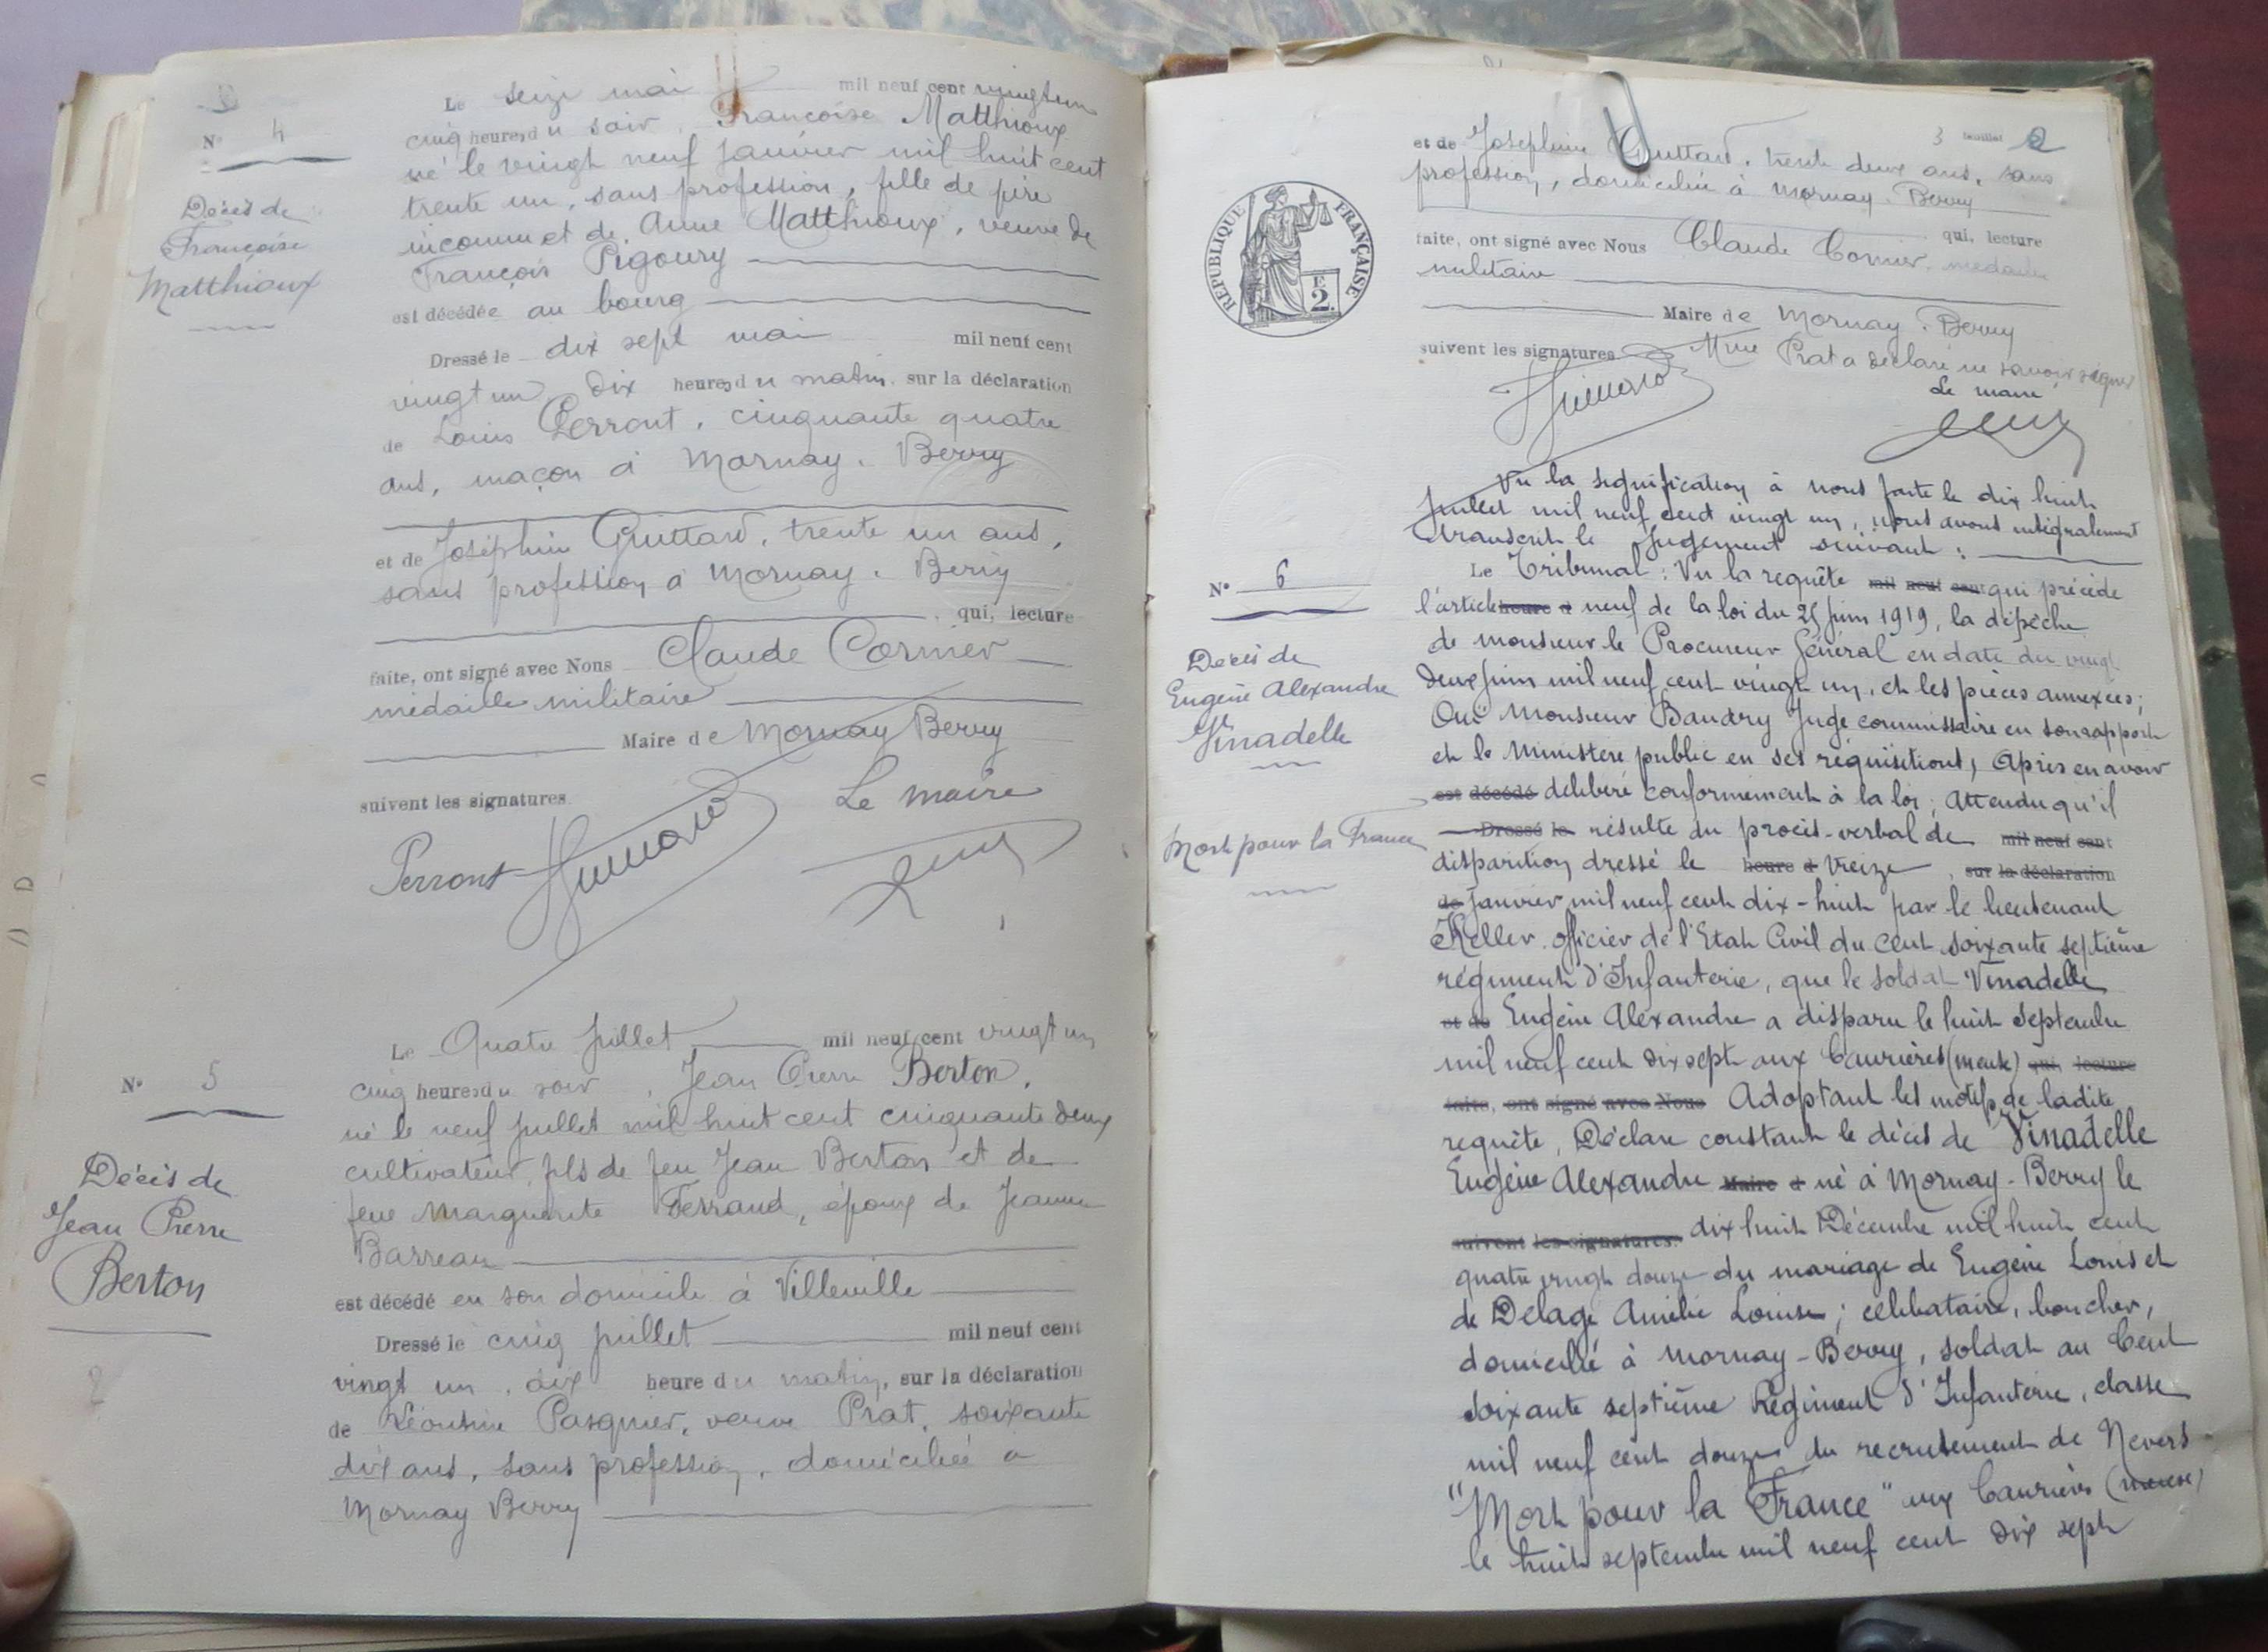 N° 4
Décès de
Françoise
Matthioux
Le seize mai mil neuf cent vingt un
cinq heures du soir, Françoise Matthioux
né le vingt neuf janvier mil huit cent
trente un, sans profession, fille de père
inconnu et de Anne Matthioux, veuve de
François Pigoury
est décédée au bourg
Dressé le dix sept mai mil neuf cent
vingt un dix heures du matin, sur la déclaration
de Louis Perront, cinquante quatre
ans, maçon à Mornay-Berry
et de Joséphine Guittard, trente un ans,
sans profession à Mornay-Berry
qui, lecture
faite, ont signé avec Nous Claude Cornier
médaille militaire
Maire de Mornay Berry
suivent les signatures
Le maire
Perront
N° 5
Décès de
Jean Pierre
Berton
Le Quatre juillet mil neuf cent vingt un
cinq heures du soir, Jean Pierre Berton,
né le neuf juillet mil huit cent cinquante deux
cultivateur, fils de feu Jean Berton et de
feue Marguerite Ferrand, époux de Jeanne
Barreau
est décédé en son domicile à Villeville
Dressé le cinq juillet mil neuf cent
vingt un, dix heure du matin, sur la déclaration
de Léontine Pasquier, veuve Prat, soixante
dix ans, sans profession, domiciliée à
Mornay Berry
3 feuillet 2
et de Joséphine Guittard, trente deux ans, sans
profession, domiciliée à Mornay-Berry
qui, lecture
faite, ont signé avec Nous Claude Cornier, médaille
militaire
Maire de Mornay-Berry
suivent les signatures Mme Prat a déclaré ne savoir signer
Le maire
RÉPUBLIQUE FRANÇAISE
F
2.
Vu la signification à nous faite le dix huit
juillet mil neuf cent vingt un, nous avons intégralement
transcrit le jugement suivant :
N° 6
Décès de
Eugène Alexandre
Vinadelle
Mort pour la France
Le Tribunal : Vu la requête mil neuf cent qui précède
l'article heure d neuf de la loi du 25 juin 1919, la dépêche
de monsieur le Procureur Général en date du vingt
deux juin mil neuf cent vingt un, et les pièces annexées ;
Ouï Monsieur Baudry Juge commissaire en son rapport
et le Ministère public en ses réquisitions, Après en avoir
est décédé délibéré conformément à la loi ; Attendu qu'il
Dressé le résulte du procès-verbal de mil neuf cent
disparition dressé le heure d treize, sur la déclaration
de janvier mil neuf cent dix-huit par le lieutenant
Keller officier de l'Etat Civil du cent soixante septième
régiment d'Infanterie, que le soldat Vinadelle
et de Eugène Alexandre a disparu le huit septembre
mil neuf cent dix sept aux Caurières (meuse) qui, lecture
faite, ont signé avec Nous Adoptant les motifs de ladite
requête, Déclare constant le décès de Vinadelle
Eugène Alexandre Maire d né à Mornay-Berry le
suivent les signatures. dix huit Décembre mil huit cent
quatre vingt douze du mariage de Eugène Louis et
de Delage Amélie Louise ; célibataire, boucher,
domicilié à Mornay-Berry, soldat au Cent
soixante septième Régiment d'Infanterie, classe
mil neuf cent douze du recrutement de Nevers
"Mort pour la France" aux Caurières (meuse)
le huit septembre mil neuf cent dix sept